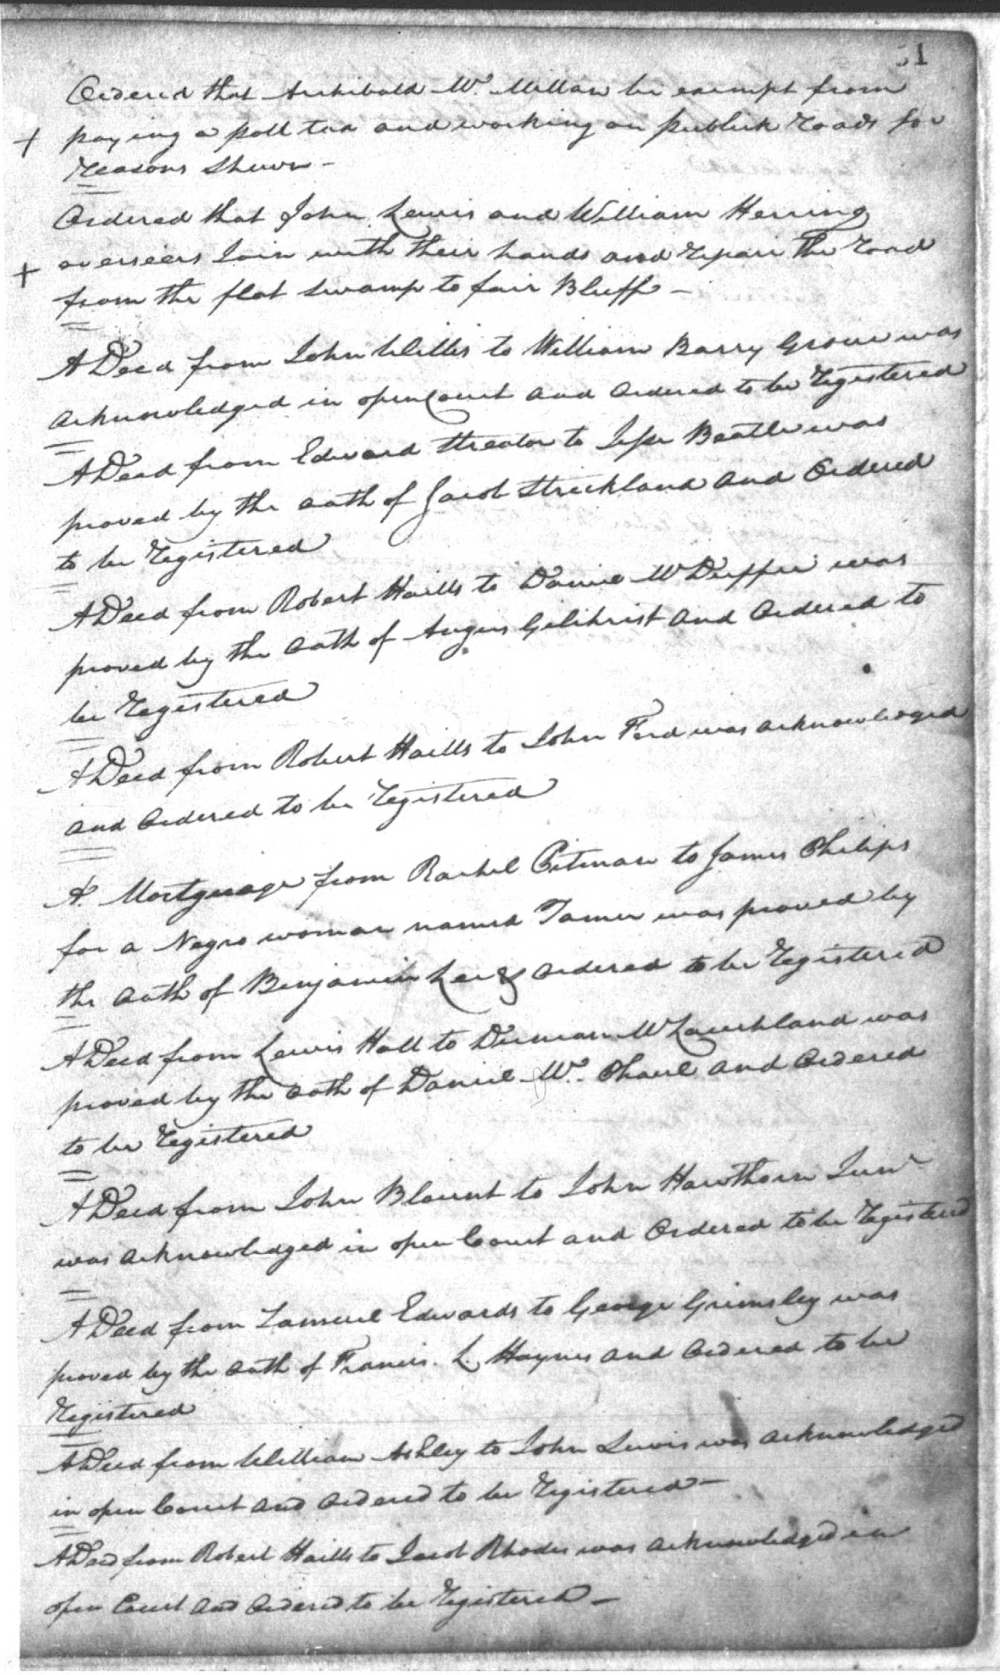 51
Ordered that Archibald Mc. Millan be exempt from
+ paying a poll tax and working on publick roads for
reasons Shewn -
Ordered that John Lewis and William Herring
+ overseers Join with their hands and repair the road
from the flat swamp to fair Bluff -
A Deed from John Willis to William Barry Grove was
acknowledged in open Court and ordered to be registered
A Deed from Edward Streator to Beatle was
proved by the oath of Jacob Strickland and Ordered
to be registered
A Deed from Robert Haills to Daniel McDuffie was
proved by the oath of Angus Gilchrist and ordered to
be registered
A Deed from Robert Haills to John Ford was acknowledged
and ordered to be registered
A. Mortguage from Rachel Pitman to James Philips
for a Negro woman named Tamer was proved by
the oath of Benjamin Lee & ordered to be registered
A Deed from Lewis Hall to McLauchland was
proved by the oath of Daniel Mc. Phaul and ordered
to be registered
A Deed from John Blount to John Hawthorn Junr
was acknowledged in open Court and Ordered to be registered
A Deed from Samuel Edwards to George Grimsley was
proved by the oath of Francis. L Haynes and ordered to be
registered
A Deed from William Ashley to John Lewis was acknowledged
in open Court and ordered to be registered -
A Deed from Robert Haills to Jacob Rhodes was acknowledged in
open Court and ordered to be registered -